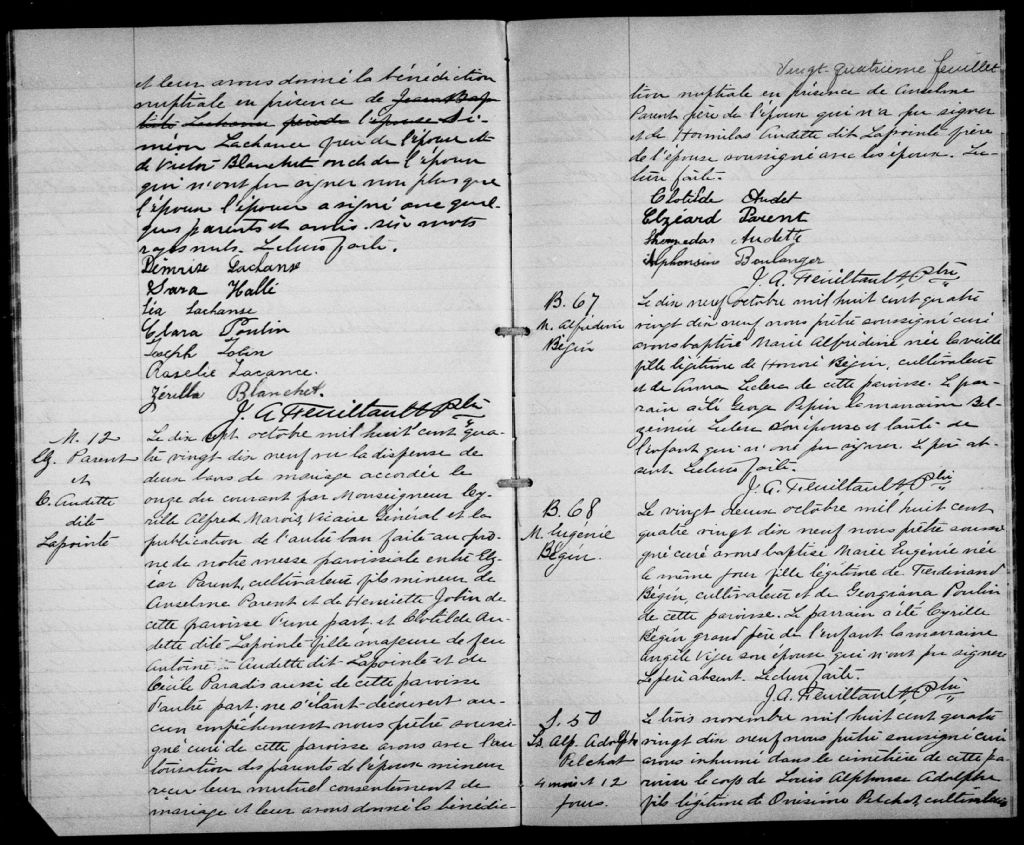 et leur avons donné la bénédiction
nuptiale en présence de Jean Bap
tiste Lachance père de l'épouse Si-
méon Lachance père de l'époux et
de Victor Blanchet oncle de l'époux
qui n'ont pu signer non plus que
l'époux l'épouse a signé avec quel-
ques parents et amis. six mots
rayés nuls. Lecture faite.
Démerise Lachanse
Sara Hallé
Léa Lachanse
Clara Poulin
Joseph Tobin
Roselie Lacance.
Zérilla Blanchet.
J. A. Feuiltault Ptre
M. 12
Elz. Parent
et
C. Audette
dite
Lapointe
Le dix sept octobre mil huit cent qua-
tre vingt dix neuf vu la dispense de
deux bans de mariage accordée le
onze du courant par Monseigneur Cy-
rille Alfred Marois, Vicaire Général et la
publication de l'autre ban faite au prô-
ne de notre messe paroissiale entre Elz-
éar Parent, cultivateur fils mineur de
Anselme Parent et de Henriette Jobin de
cette paroisse d'une part. et Clotilde Au-
dette dite Lapointe fille majeure de feu
Antoine Audette dit Lapointe et de
Cécile Paradis aussi de cette paroisse
d'autre part. ne s'étant découvert au-
cun empêchement nous prêtre soussi-
gné curé de cette paroisse avons avec l'au
torisation des parents de l'époux mineur
reçu leur mutuel consentement de
mariage et leur avons donné la bénédic-
Vingt-quatrième feuillet
tion nuptiale en présence de Anselme
Parent père de l'époux qui n'a pu signer
et de Hormidas Audette dit Lapointe frère
de l'épouse soussigné avec les époux. Lec-
ture faite.
Clotilde Audet
Elzéard Parent
Audette
Alphonsine Boulanger
J. A. Feuiltault, Ptre
B. 67
M. Alfrédine
Bégin
Le dix neuf octobre mil huit cent quatre
vingt dix neuf nous prêtre soussigné curé
avons baptisé Marie Alfredine née la veille
fille légitime de Honoré Bégin, cultivateur
et de Anna Leclerc de cette paroisse. Le par-
rain a été George Pepin la marraine Bel-
zémire Leclerc son épouse et tante de
l'enfant qui n'ont pu signer. Le père ab-
sent. Lecture faite.
J. A. Feuiltault, Ptre
B. 68
M. Eugénie
Bégin.
Le vingt deux octobre mil huit cent
quatre vingt dix neuf nous prêtre soussi-
gné curé avons baptisé Marie Eugénie née
le même jour fille légitime de Ferdinand
Bégin, cultivateur et de Georgiana Poulin
de cette paroisse. Le parrain a été Cyrille
Bégin grand père de l'enfant la marraine
Angèle son épouse qui n'ont pu signer
Le père absent. Lecture faite.
J. A. Feuiltault, Ptre
S. 50
Ls. Alp. Adolphe
Pelchat
4 mois et 12
jours.
Le trois novembre mil huit cent quatre
vingt dix neuf nous prêtre soussigné curé
avons inhumé dans le cimetière de cette pa-
roisse le corps de Louis Alphonse Adolphe
fils légitime de Onésime Pelchat, cultivateur